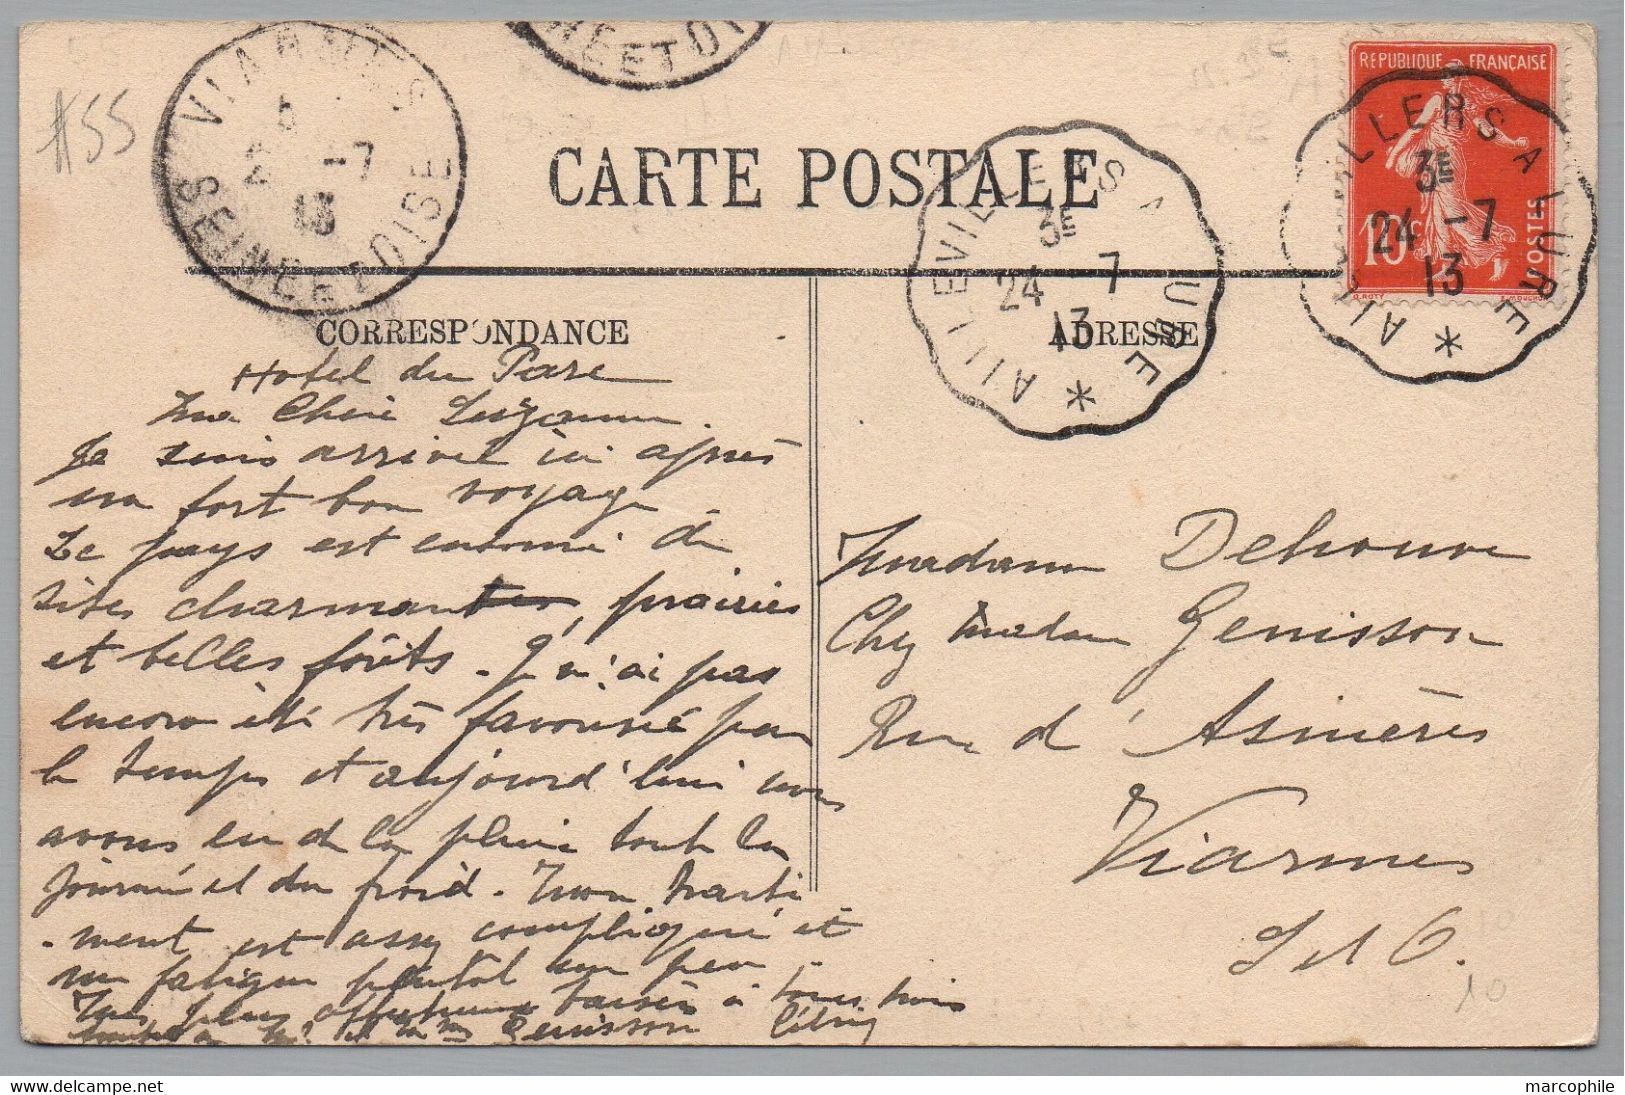 #55
VIARMES
-7
13
SEINE ET OISE
CARTE POSTALE
AILLEVILLERS A LURE *
3E
24 -7
13
REPUBLIQUE FRANÇAISE
10c
POSTES
AILLEVILLERS A LURE *
3E
24 -7
13
CORRESPONDANCE
ADRESSE
Hotel du Parc
Ma Chère Suzanne.
Je suis arrivée ici après
un fort bon voyage
Le pays est entouré de
sites charmants, prairies
et belles forêts. Je n'ai pas
encore été très favorisé par
le temps et aujourd'hui nous
avons eu de la pluie toute la
journée et du froid. Mon traite
-ment est assez compliqué et
me fatigue plutôt un peu.
Mes plus affectueux baisers à tous trois
Genisson
Madame Dehouve
Chez Madame Genisson
Rue d'Asnières
Viarmes
S et O.
10
marcophile